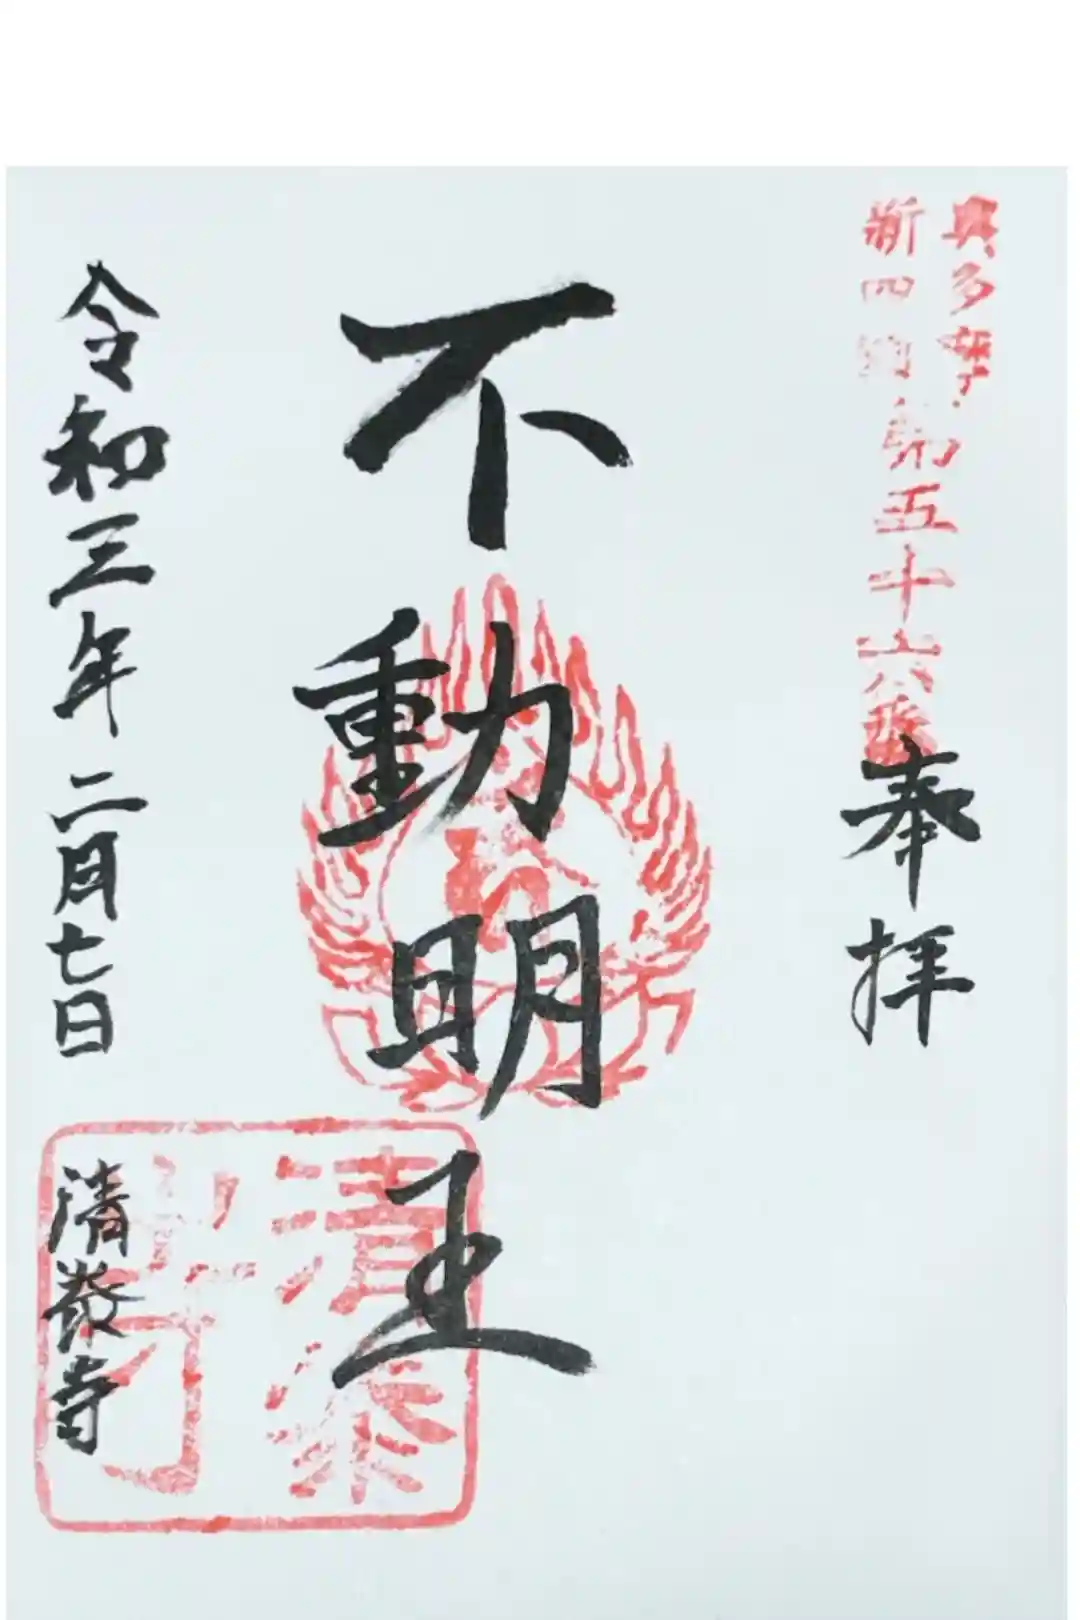 奥多摩
新四國
第五十六番
奉拝
不動明王
令和三年二月七日
清泰寺
清泰寺